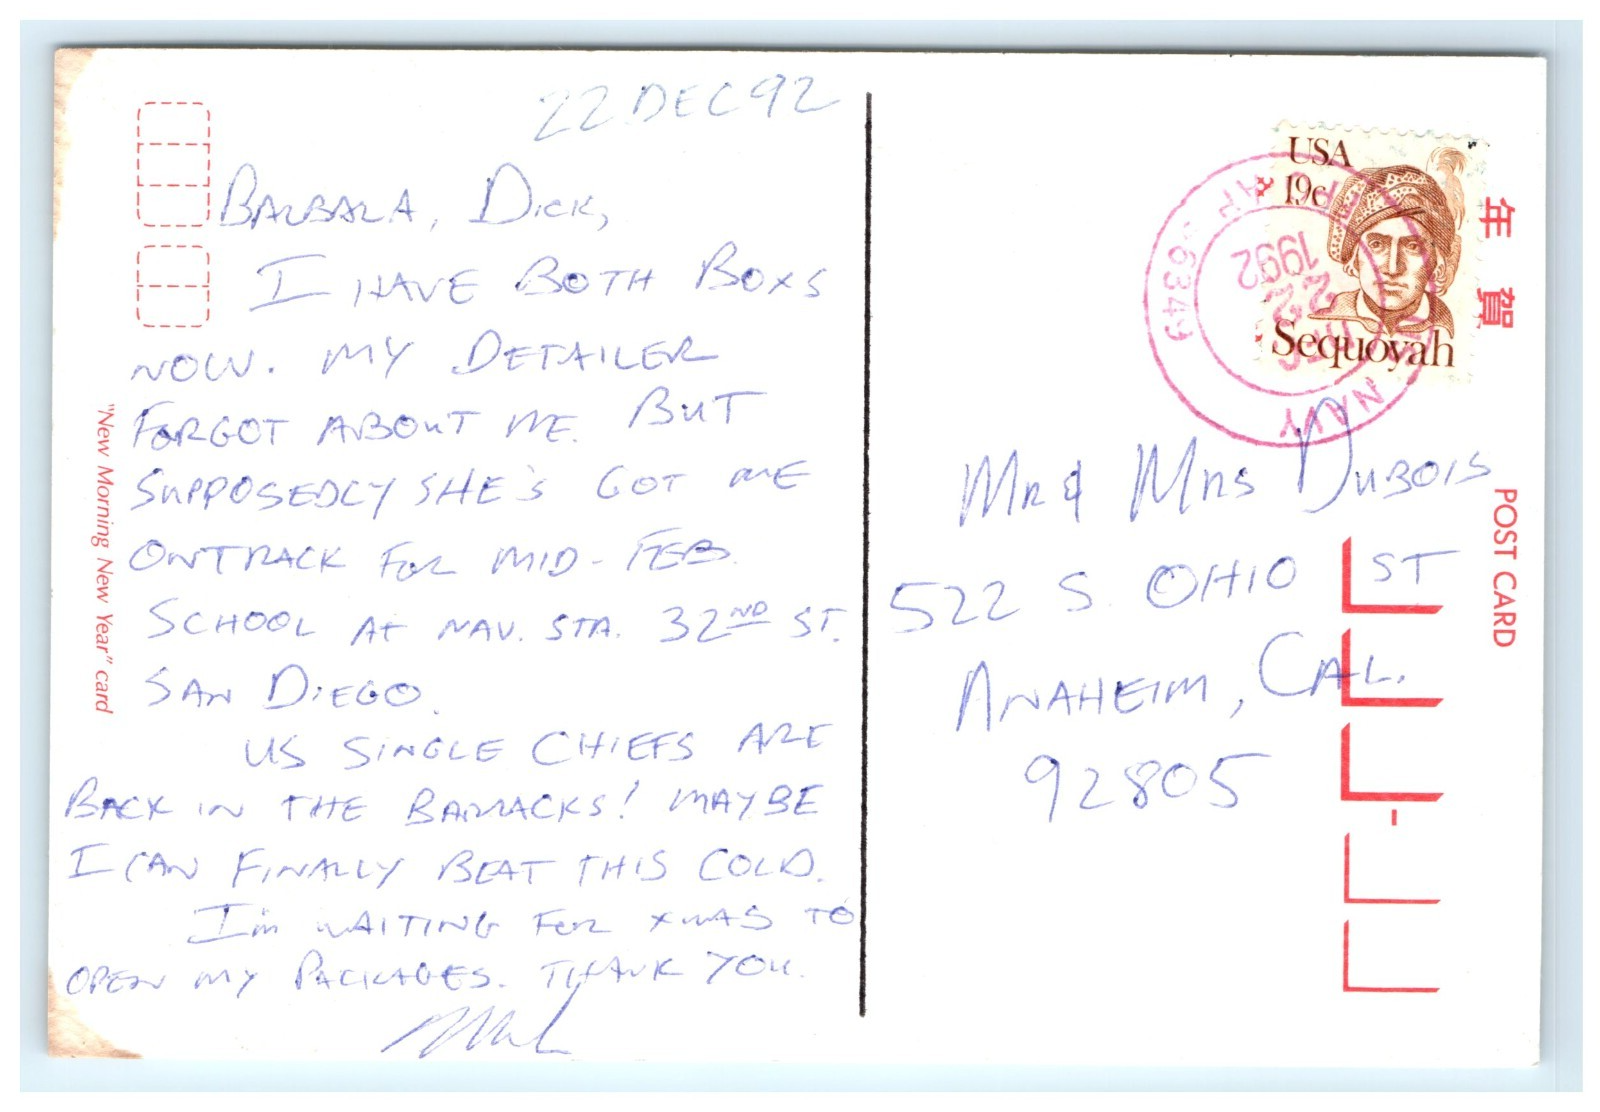 22 DEC 92
BARBARA, DICK,
I HAVE BOTH BOXS
NOW. MY DETAILER
FORGOT ABOUT ME. BUT
SUPPOSEDLY SHE'S GOT ME
ONTRACK FOR MID-FEB.
SCHOOL AT NAV. STA. 32ND ST.
SAN DIEGO.
US SINGLE CHIEFS ARE
BACK IN THE BARRACKS! MAYBE
I CAN FINALLY BEAT THIS COLD.
I'm WAITING FOR XMAS TO
OPEN MY PACKAGES. THANK YOU.
"New Morning New Year" card
USA
19¢
Sequoyah
NAVY
AP 96349
DEC
22
1992
年賀
POST CARD
MR & MRS DUBOIS
522 S. OHIO ST
ANAHEIM, CAL.
92805